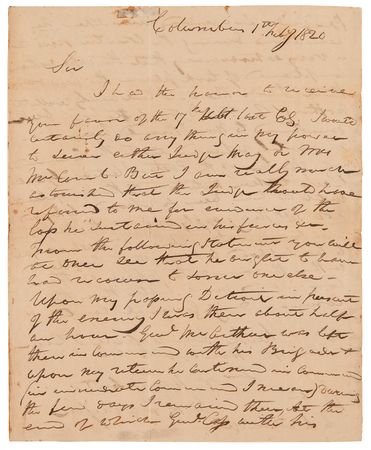 Columbus 1st July 1820
Sir
I had the honor to receive
your favor of the 17th Ult. last I would
certainly do any thing in my power
to serve either Judge May or Mrs
McComb. But I am really much
astonished that the Judge should have
referred to me for evidence of the
loss he sustained in his fences &c
from the following statement you will
at once see that he ought to have
had recourse to some one else -
Upon my passing Detroit in pursuit
of the enemy I was there about half
an hour. Genl McArthur was left
there in command with his Brigade &
upon my return he continued in command
(in immediate command I mean) during
the few days I remained there at the
end of which Genl Cass with his